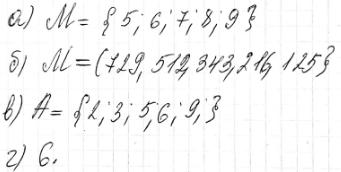 а) M = { 5; 6; 7; 8; 9 }
б) M = (729, 512, 343, 216, 125}
в) A = {2; 3; 5; 6; 9; }
г) 6.